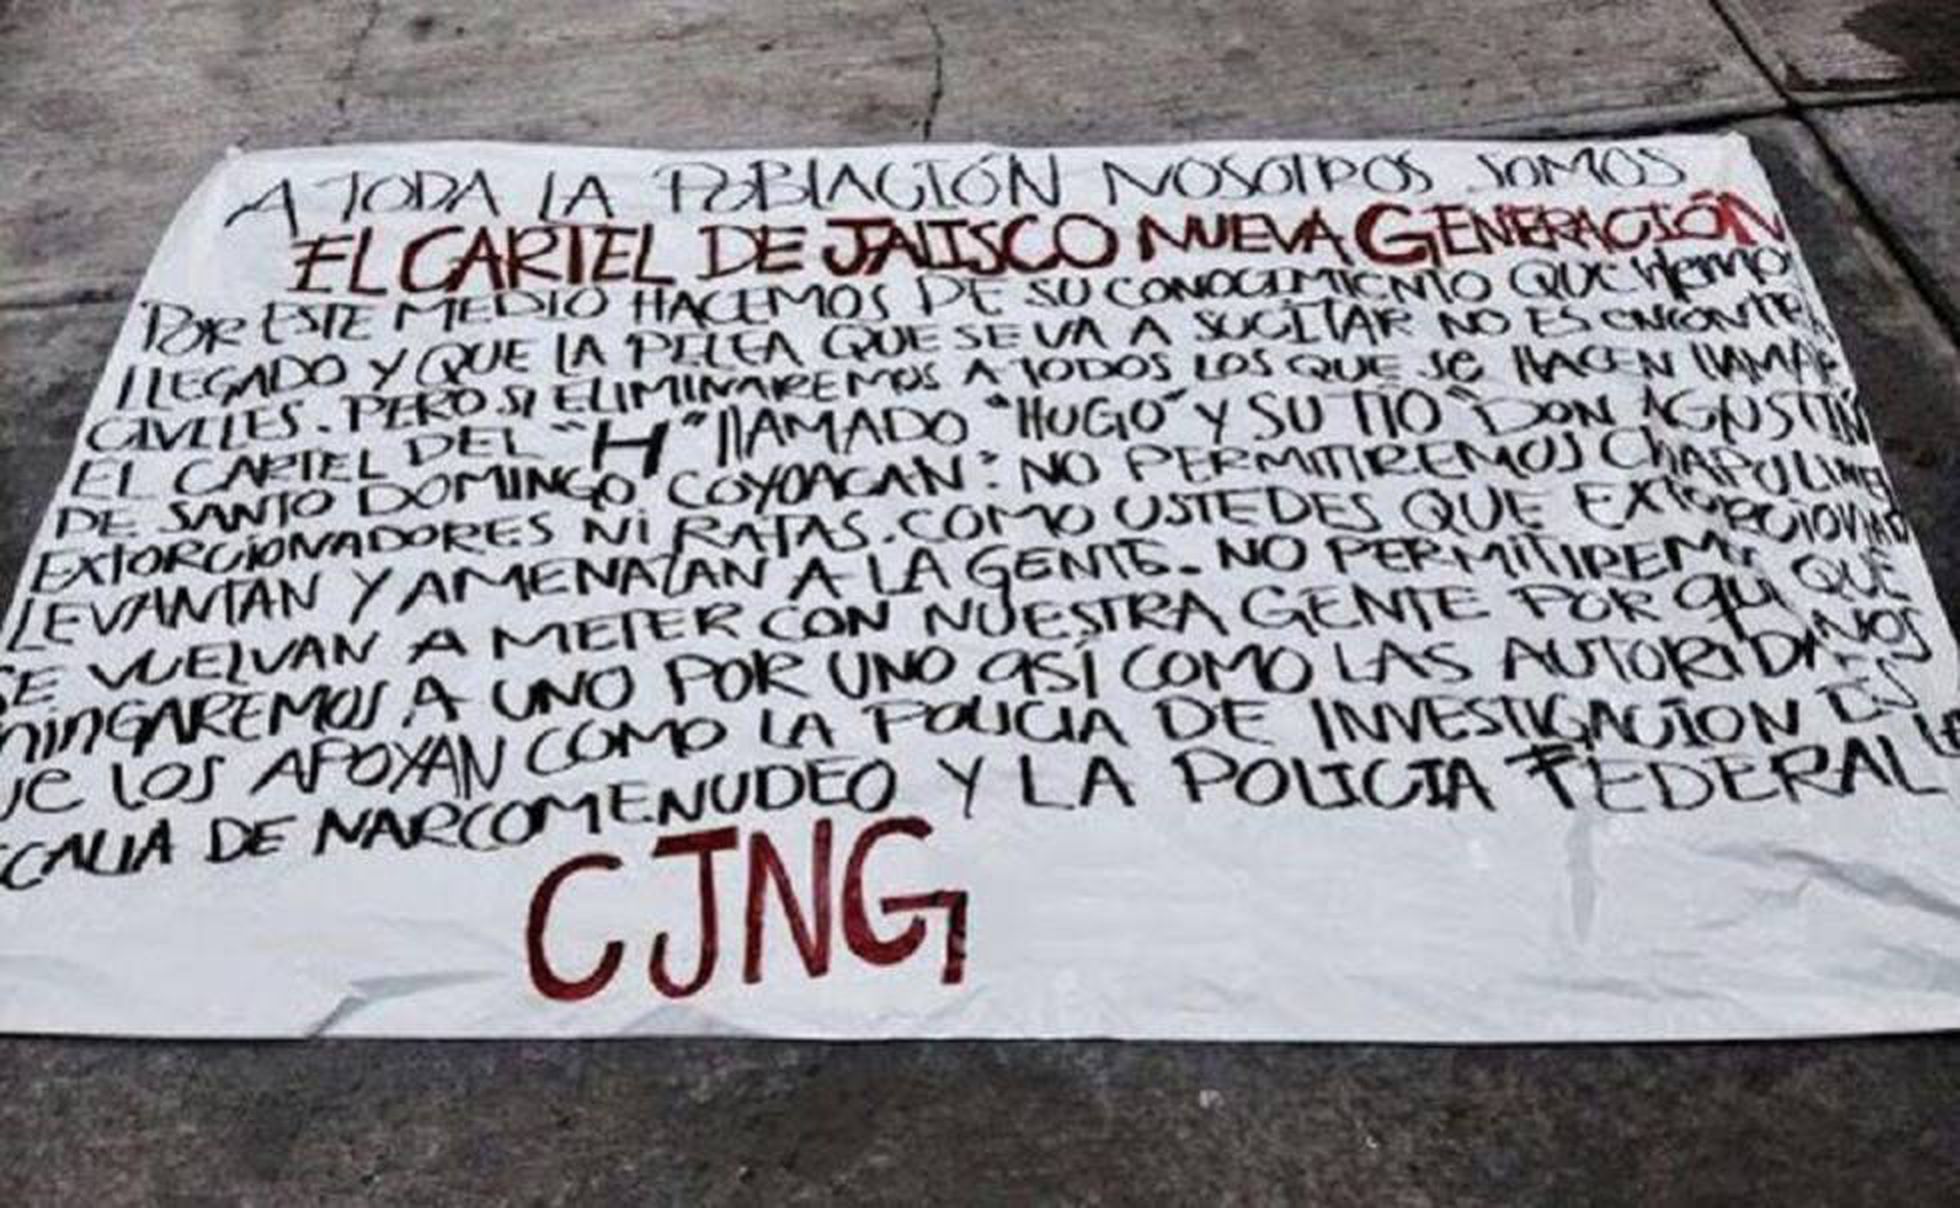 A TODA LA POBLACIÓN NOSOTROS SOMOS
EL CARTEL DE JALISCO NUEVA GENERACIÓN
POR ESTE MEDIO HACEMOS DE SU CONOCIMIENTO QUE HEMOS
LLEGADO Y QUE LA PELEA QUE SE VA A SUCITAR NO ES ENCONTRA
CIVILES. PERO SI ELIMINAREMOS A TODOS LOS QUE SE HACEN LLAMAR
EL CARTEL DEL "H" LLAMADO "HUGO" Y SU TIO "DON AGUSTIN
DE SANTO DOMINGO COYOACAN: NO PERMITIREMOS CHAPULINES
EXTORCIONADORES NI RATAS. COMO USTEDES QUE EXTORCIONAN
LEVANTAN Y AMENAZAN A LA GENTE. NO PERMITIREMOS QUE
SE VUELVAN A METER CON NUESTRA GENTE POR QUE NOS
CHINGAREMOS A UNO POR UNO ASÍ COMO LAS AUTORIDADES
QUE LOS APOYAN COMO LA POLICIA DE INVESTIGACIÓN LA
DE NARCOMENUDEO Y LA POLICIA FEDERAL
CJNG